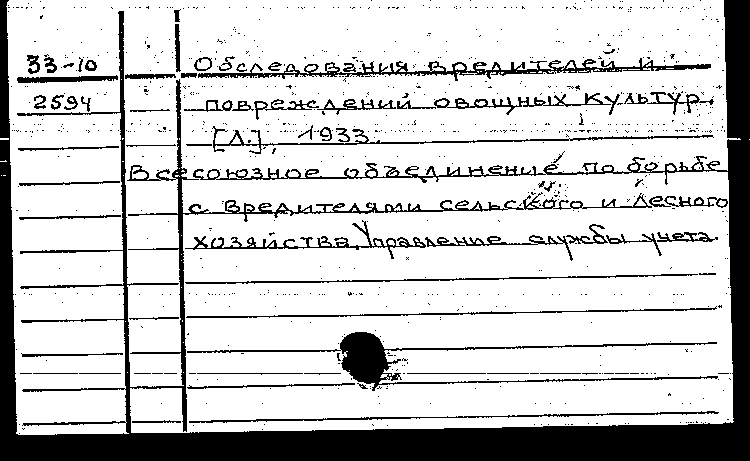 33-10 Обследования вредителей и
2594 повреждений овощных культур.
[Л.], 1933.
Всесоюзное объединение по борьбе
с вредителями сельского и лесного
хозяйства. Управление службы учета.